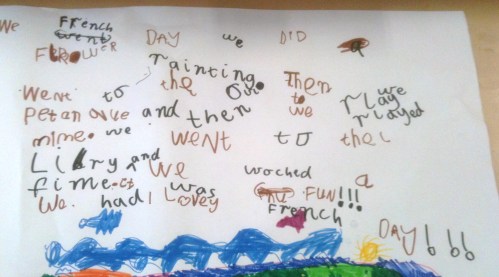 We French DAY we DID a
FLOWER rainting. Then we
Went to the Our to rlay
Petanque and then we rlayed
mime. we WENT TO the
Libry and We woched a
fime. It was FUN!!!
We had I Lovey French
DAY!!!